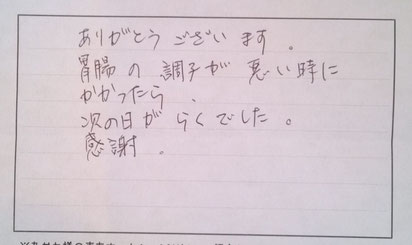 ありがとうございます。
胃腸の調子が悪い時に
かかったら、
次の日がらくでした。
感謝。